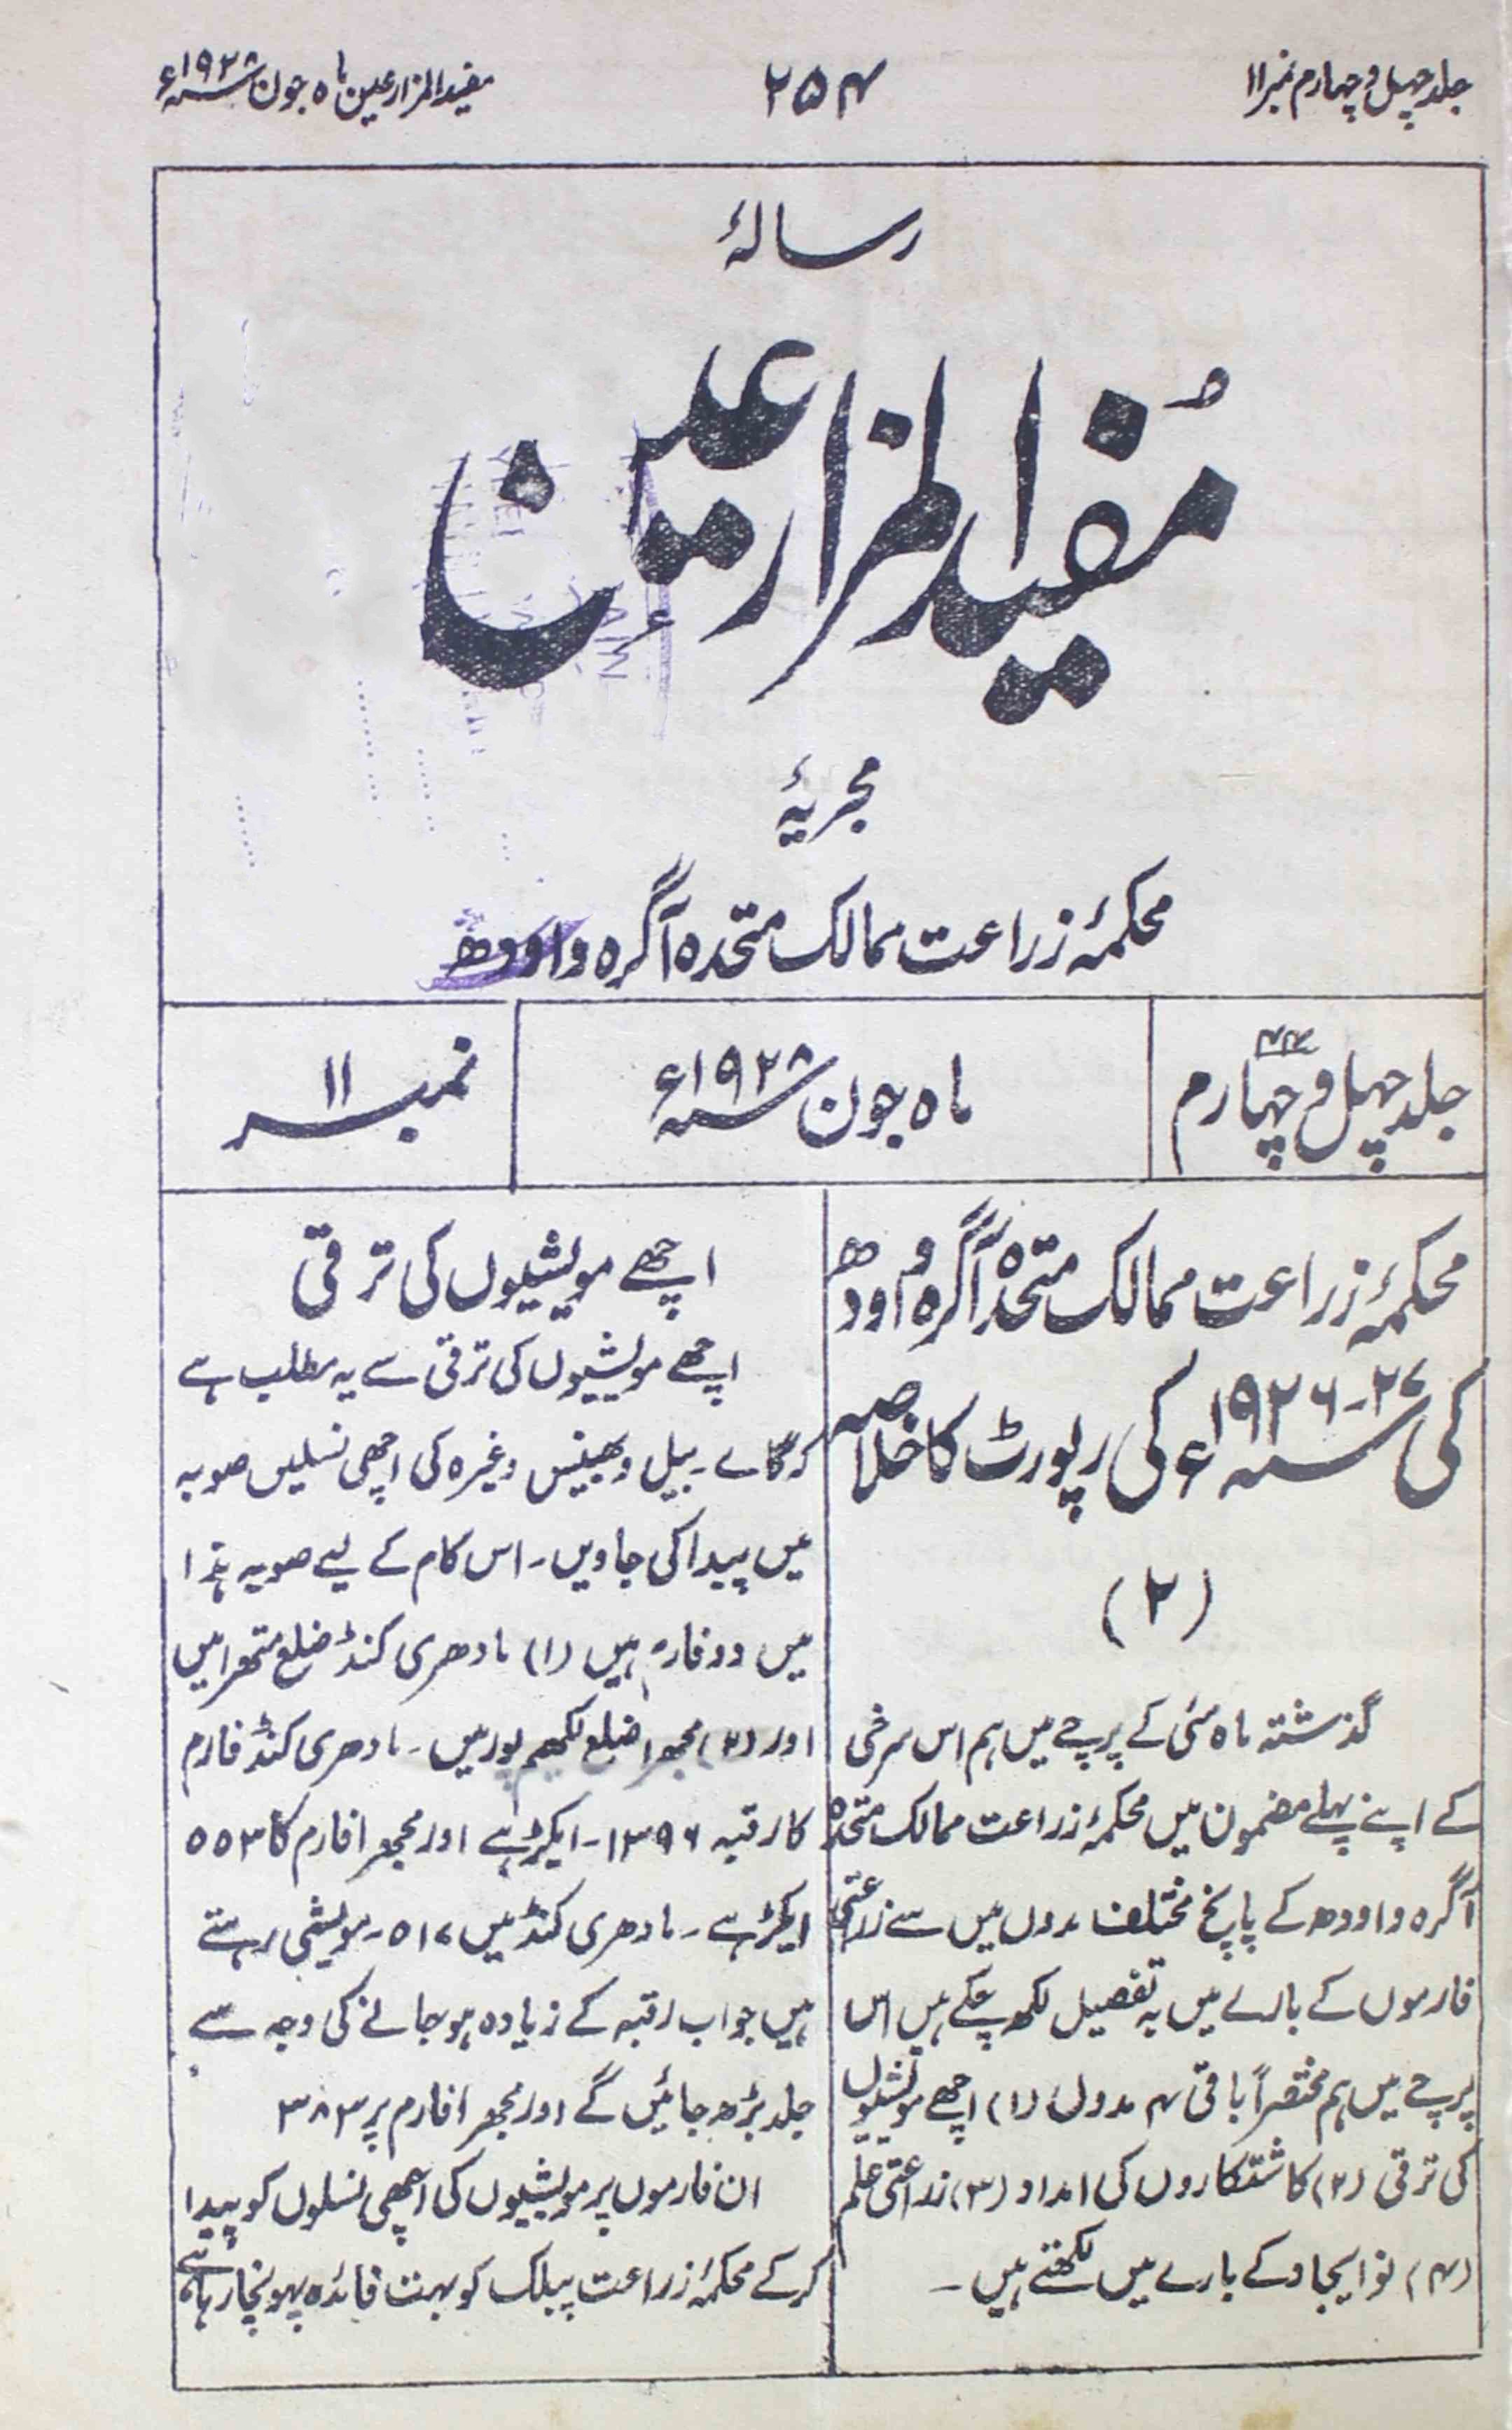 جلد چہل و چہارم نمبر ۱۱
۲۵۴
مفید المزارعین ماہ جون سنہ ۱۹۲۸ء
رسالۂ
مُفید المزارعین
مجریۂ
محکمۂ زراعت ممالک متحدہ آگرہ و اودھ
جلد چہل و چہارم ۴۴
ماہ جون سنہ ۱۹۲۸ء
نمبر ۱۱
محکمۂ زراعت ممالک متحدہ آگرہ و اودھ
کی سنہ ۲۷-۱۹۲۶ء کی رپورٹ کا خلاصہ
(۲)
گذشتہ ماہ مئی کے پرچے میں ہم اس سرخی
کے اپنے پہلے مضمون میں محکمۂ زراعت ممالک متحدہ
آگرہ و اودھ کے پانچ مختلف مدوں میں سے زراعتی
فارموں کے بارے میں بہ تفصیل لکھ چکے ہیں اس
پرچے میں ہم مختصراً باقی ۴ مدوں (۱) اچھے مویشیوں
کی ترقی (۲) کاشتکاروں کی امداد (۳) زراعتی علم
(۴) نو ایجاد کے بارے میں لکھتے ہیں ۔
اچھے مویشیوں کی ترقی
اچھے مویشیوں کی ترقی سے یہ مطلب ہے
کہ گائے ۔ بیل و بھینس وغیرہ کی اچھی نسلیں صوبہ
میں پیدا کی جاویں ۔ اس کام کے لیے صوبہ ہذا
میں دو فارم ہیں (۱) مادھری کنڈ ضلع متھرا میں
اور (۲) مجھرا ضلع لکھیم پور میں ۔ مادھری کنڈ فارم
کا رقبہ ۱۳۹۶ ۔ ایکڑ ہے اور مجھرا فارم کا ۵۵۳
ایکڑ ہے ۔ مادھری کنڈ میں ۵۱۷ ۔ مویشی رہتے
ہیں جو اب رقبہ کے زیادہ ہو جانے کی وجہ سے
جلد بڑھ جائیں گے اور مجھرا فارم پر ۳۸۳
ان فارموں پر مویشیوں کی اچھی نسلوں کو پیدا
کر کے محکمۂ زراعت پبلک کو بہت فائدہ پہونچا رہا ہے